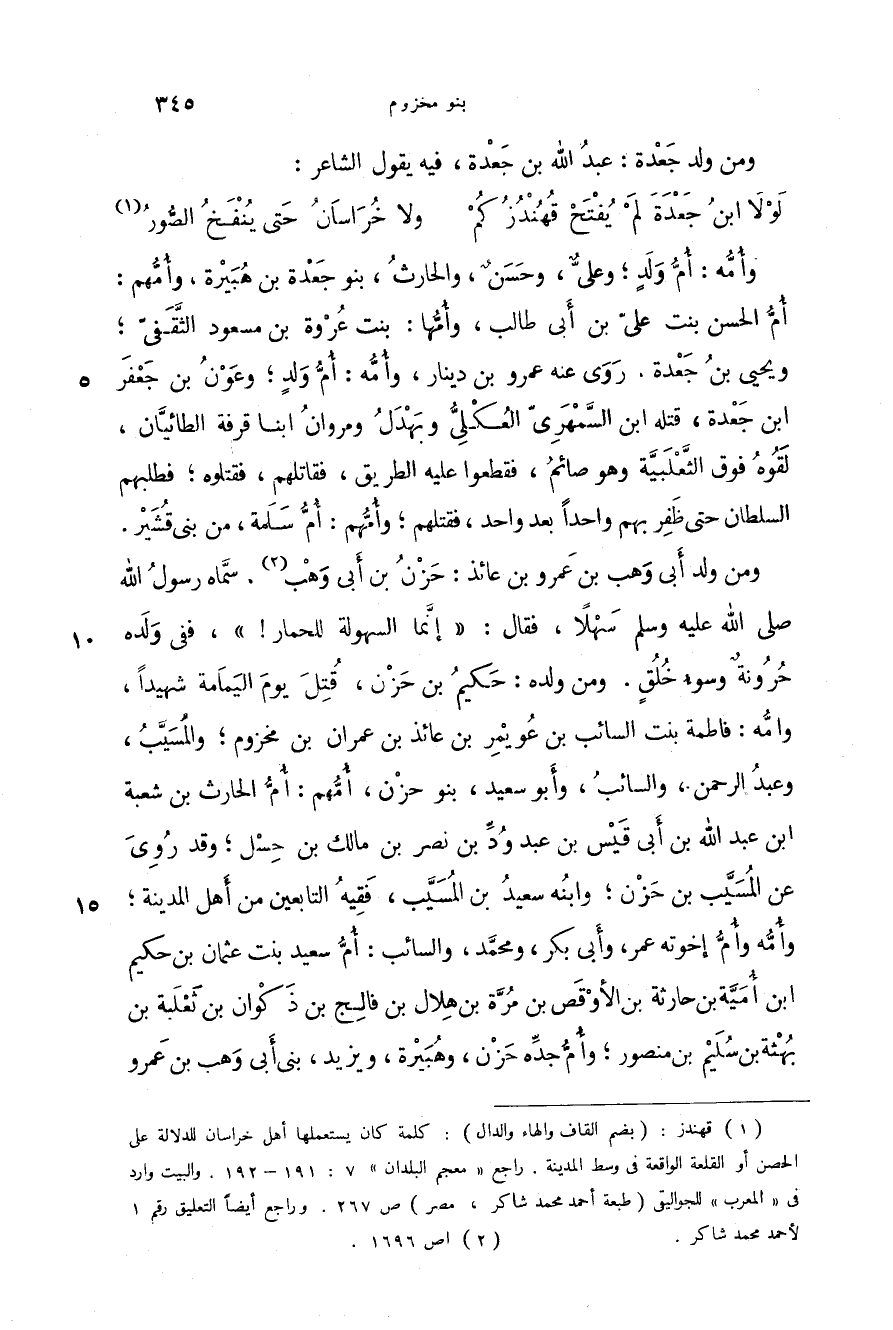 بنو مخزوم ٣٤٥
ومن ولد جَعْدة : عبدُ الله بن جَعْدة ، فيه يقول الشاعر :
لَوْلَا ابنُ جَعْدَةَ لَمْ يُفْتَحْ قُهُنْدُزُكُمْ ولا خُرَاسَانُ حَتى يُنْفَخُ الصُّورُ(١)
وأُمُّه : أُمُّ وَلَدٍ ؛ وعلىٌّ ، وحَسَنٌ ، والحارثُ ، بنو جَعْدة بن هُبَيْرة ، وأُمُّهم :
أُمُّ الحسن بنت علىّ بن أَبى طالب ، وأُمُّها : بنت عُرْوة بن مسعود الثَّقَفىّ ؛
ويحيى بنُ جَعْدة . رَوَى عنه عمرو بن دينار ، وأُمُّه : أُمُّ وَلدٍ ؛ وعَوْنُ بن جَعْفَر ٥
ابن جَعْدة ، قتله ابن السَّمْهَرِىّ العُكْلِىُّ وبَهْدَلُ ومروانُ ابنا قرفة الطائيَّان ،
لَقُوهُ فوق الثَّعْلَبيَّة وهو صائمُ ، فقطعوا عليه الطريق ، فقاتلهم ، فقتلوه ؛ فطلبهم
السلطان حتى ظَفِر بهم واحداً بعد واحد ، فقتلهم ؛ وأُمُّهم : أُمُّ سَلَمة ، من بنى قُشَيْر .
ومن ولد أَبى وَهب بن عَمرو بن عائذ : حَزْنُ بن أَبى وَهْب(٢) . سمَّاه رسولُ الله
صلى الله عليه وسلم سَهْلًا ، فقال : « إنَّما السهولة للحمار ! » ، ففى وَلَده ١٠
حُرُونةٌ وسوء خُلُقٍ . ومن ولده : حَكيمُ بن حَزْن ، قُتِلَ يومَ اليَمَامة شهيداً ،
وامُّه : فاطمة بنت السائب بن عُويْمِر بن عائذ بن عمران بن مخزوم ؛ والمُسَيَّبُ ،
وعبدُ الرحمن ، والسائبُ ، وأَبو سعيد ، بنو حزْن ، أُمُّهم : أُمُّ الحارث بن شعبة
ابن عبد الله بن أَبى قَيْس بن عبد وُدِّ بن نصر بن مالك بن حِسْل ؛ وقد رُوِىَ
عن المُسَيَّب بن حَزْن ؛ وابنُه سعيدُ بن المُسَيَّب ، فَقِيهُ التابعين من أَهل المدينة ؛ ١٥
وأُمُّه وأُمُّ إخوته عمر، وأَبى بكر ، ومحمَّد ، والسائب : أُمُّ سعيد بنت عثمان بن حكيم
ابن أُمَيَّة بن حارثة بن الأَوْقَص بن مُرَّة بن هلال بن فالج بن ذَكْوان بن ثَعْلَبة بن
بُهْثة بن سُلَيْم بن منصور ؛ وأُمُّ جدِّه حَزْن ، وهُبَيْرة ، ويزيد ، بنى أَبى وَهب بن عَمرو
(١) قهندز : (بضم القاف والهاء والدال) : كلمة كان يستعملها أهل خراسان للدلالة على
الحصن أو القلعة الواقعة فى وسط المدينة . راجع « معجم البلدان » ٧ : ١٩١ – ١٩٢ . والبيت وارد
فى « المعرب » للجواليقى ( طبعة أحمد محمد شاكر ، مصر ) ص ٢٦٧ . وراجع أيضاً التعليق رقم ١
لأحمد محمد شاكر . (٢) اص ١٦٩٦ .